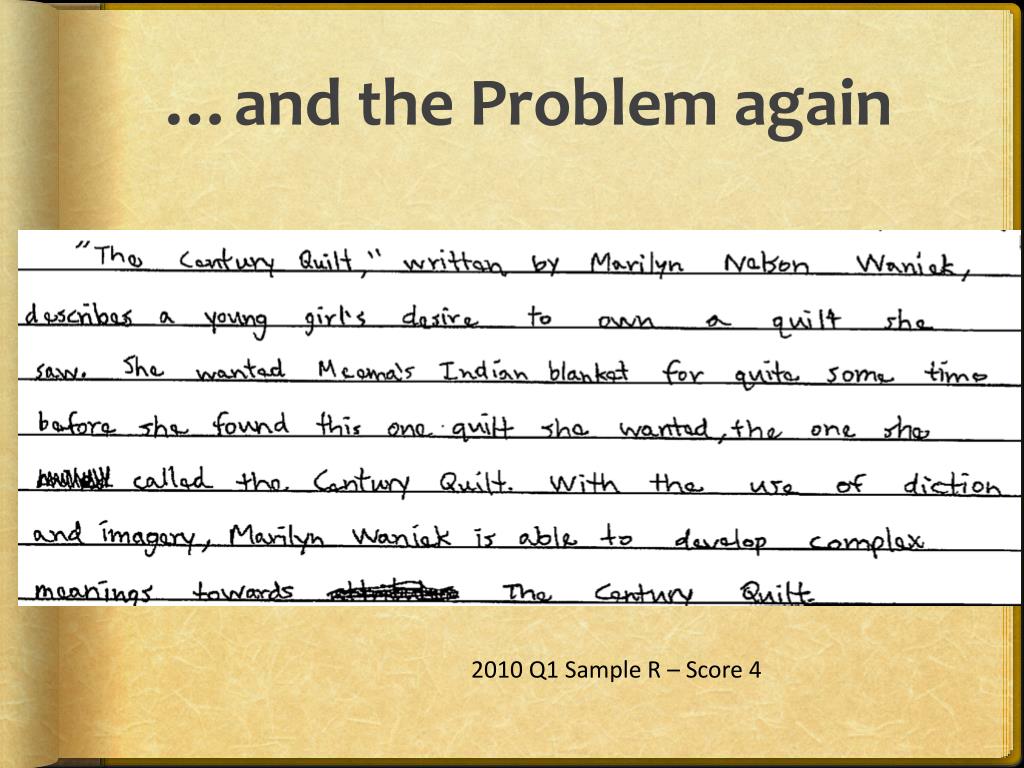 …and the Problem again
"The Century Quilt," written by Marilyn Nelson Waniek,
describes a young girl's desire to own a quilt she
saw. She wanted Meema's Indian blanket for quite some time
before she found this one quilt she wanted, the one she
called the Century Quilt. With the use of diction
and imagery, Marilyn Waniek is able to develop complex
meanings towards The Century Quilt
2010 Q1 Sample R – Score 4